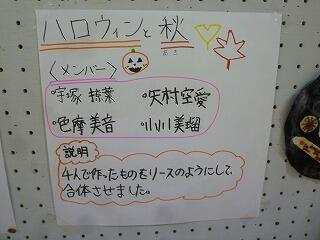 ハロウィンと秋
あき
〈メンバー〉
・宇塚 椋葉 ・矢村空愛
・色摩美音 ・小川美瑠
説明
4人で作ったものをリースのようにして、
合体させました。